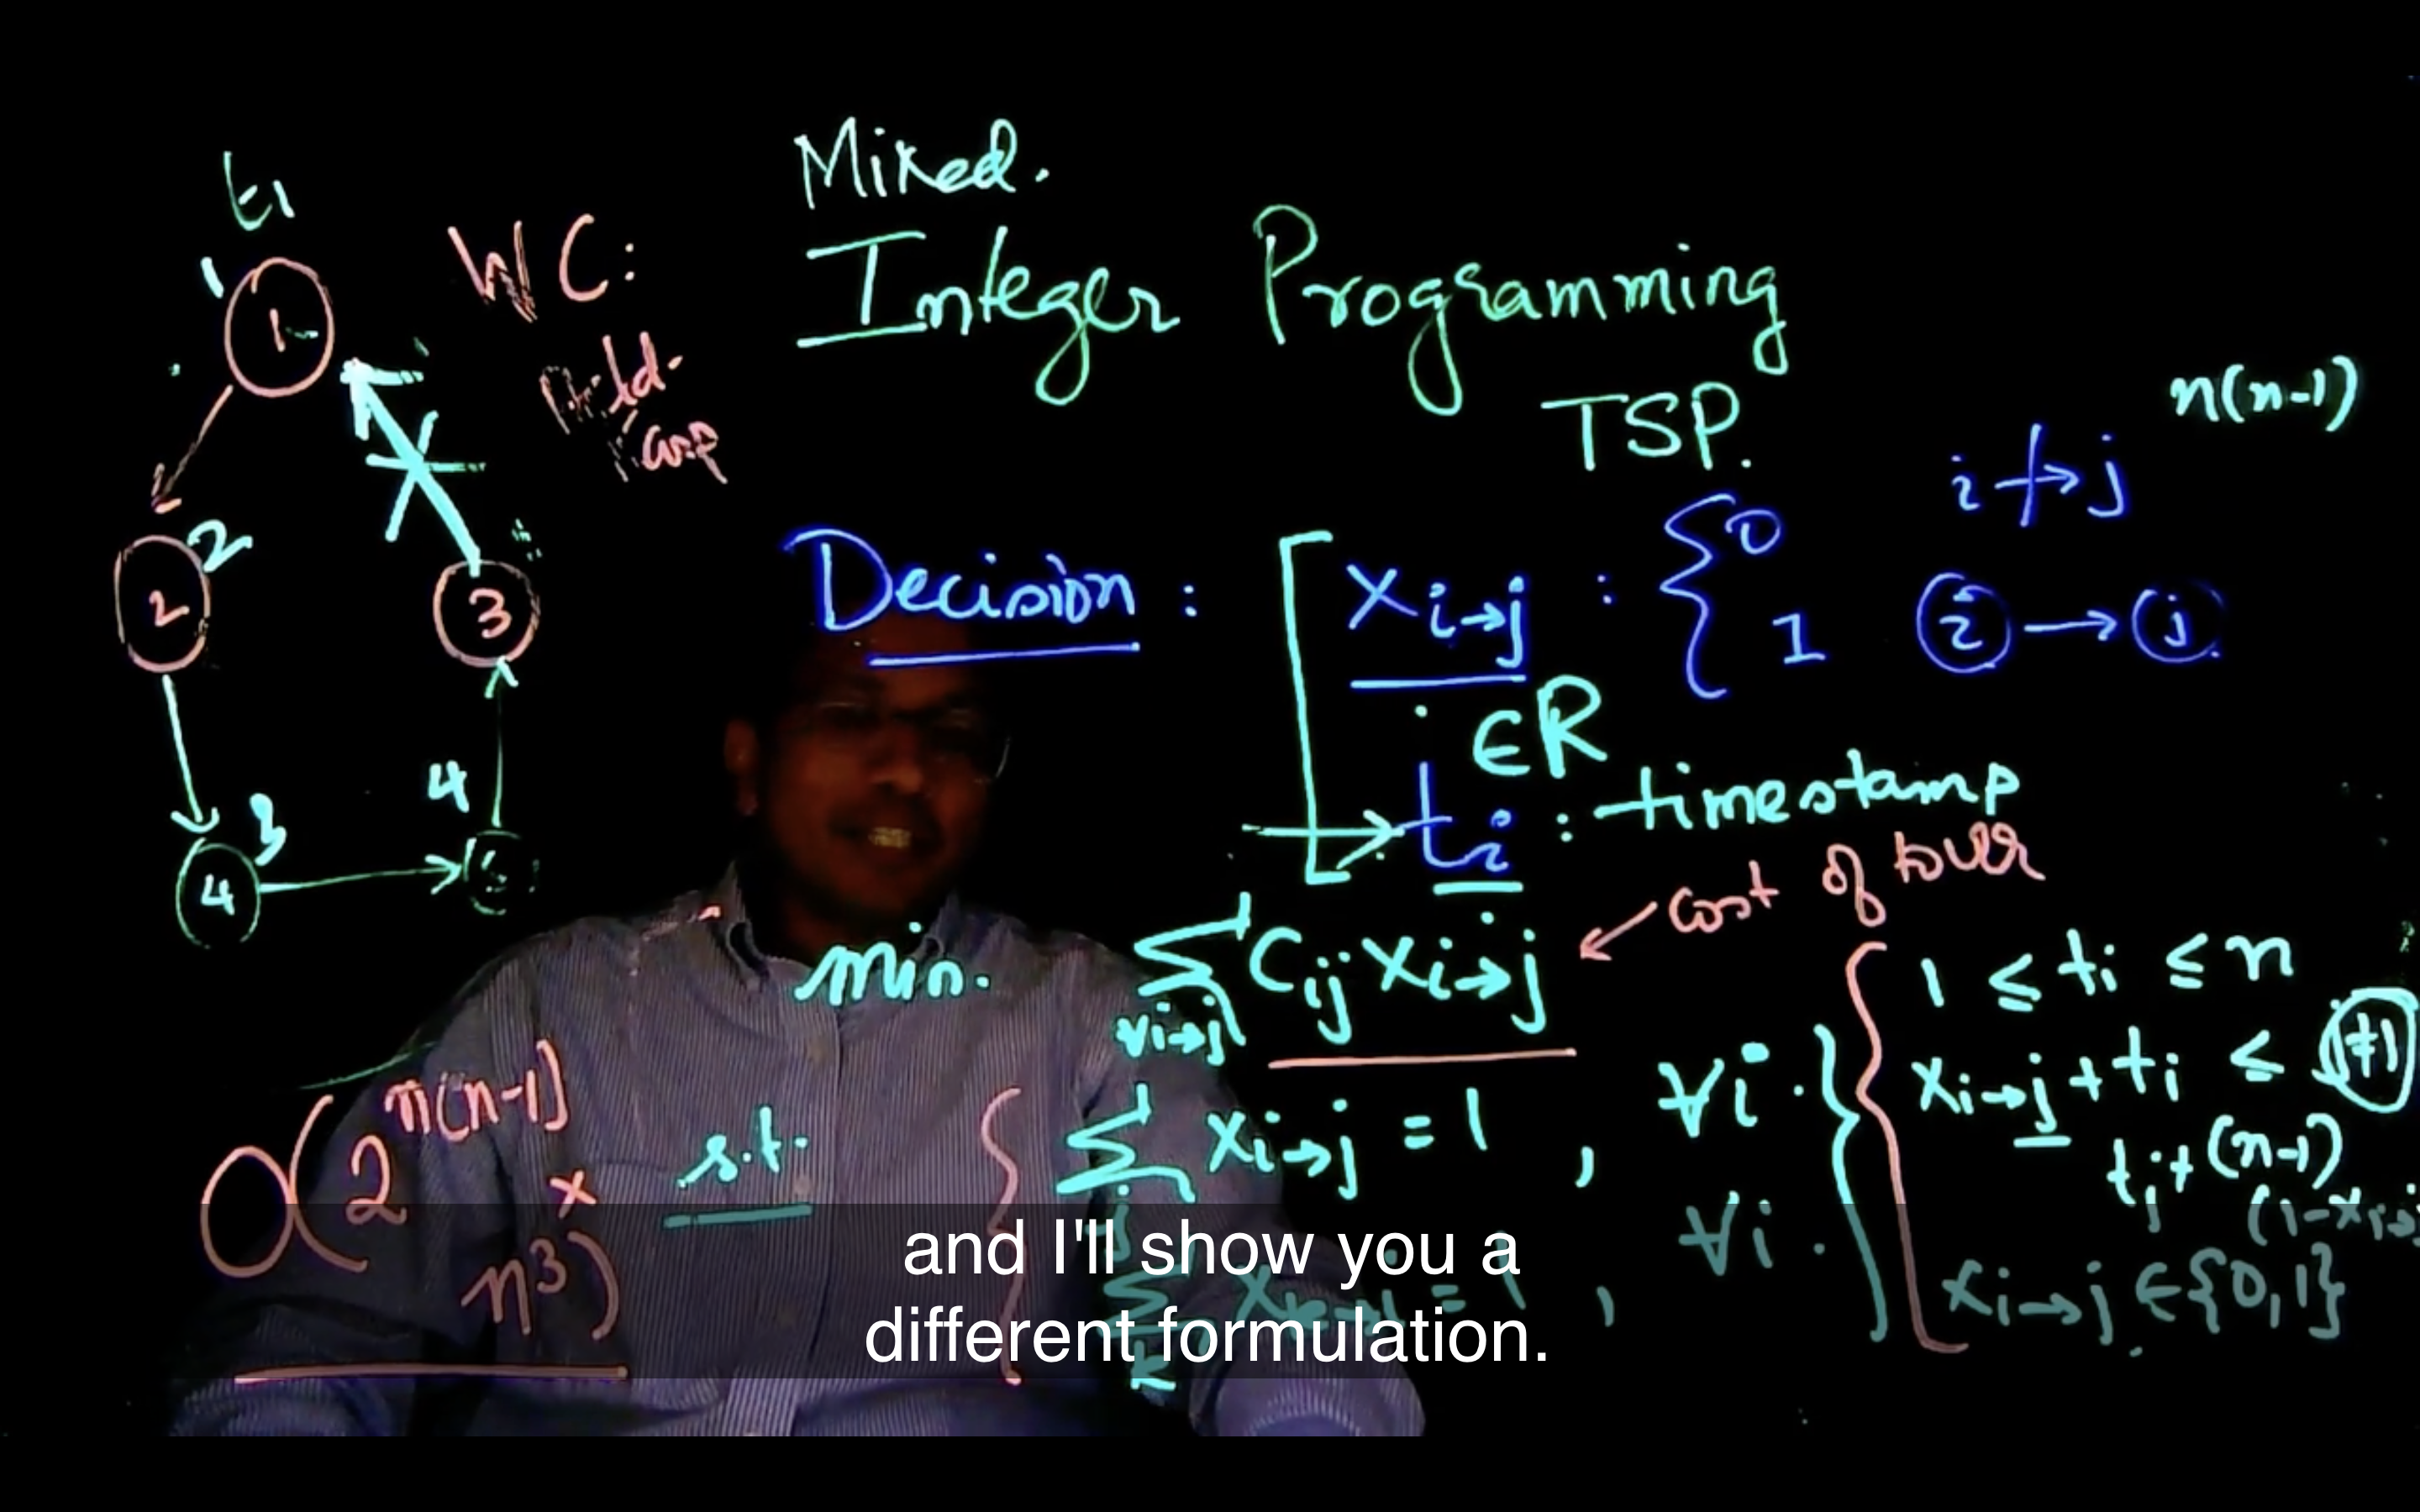 Mixed.
Integer Programming
TSP.
n(n-1)
t1
1
1
WC:
Held-
Karp
2
2
3
4
3
4
Decision :
x i→j : { 0 i ↛ j
1 i → j
∈ R
ti : timestamp
cost of tour
min. ∑ Cij xi→j
∀i→j
s.t.
∑ xi→j = 1 , ∀i.
j
= 1 , ∀i.
k
1 ≤ ti ≤ n
xi→j + ti ≤
tj + (n-1)
(1-xi→j
xi→j ∈ {0,1}
O(2^n(n-1)
×
n³)
and I'll show you a
different formulation.